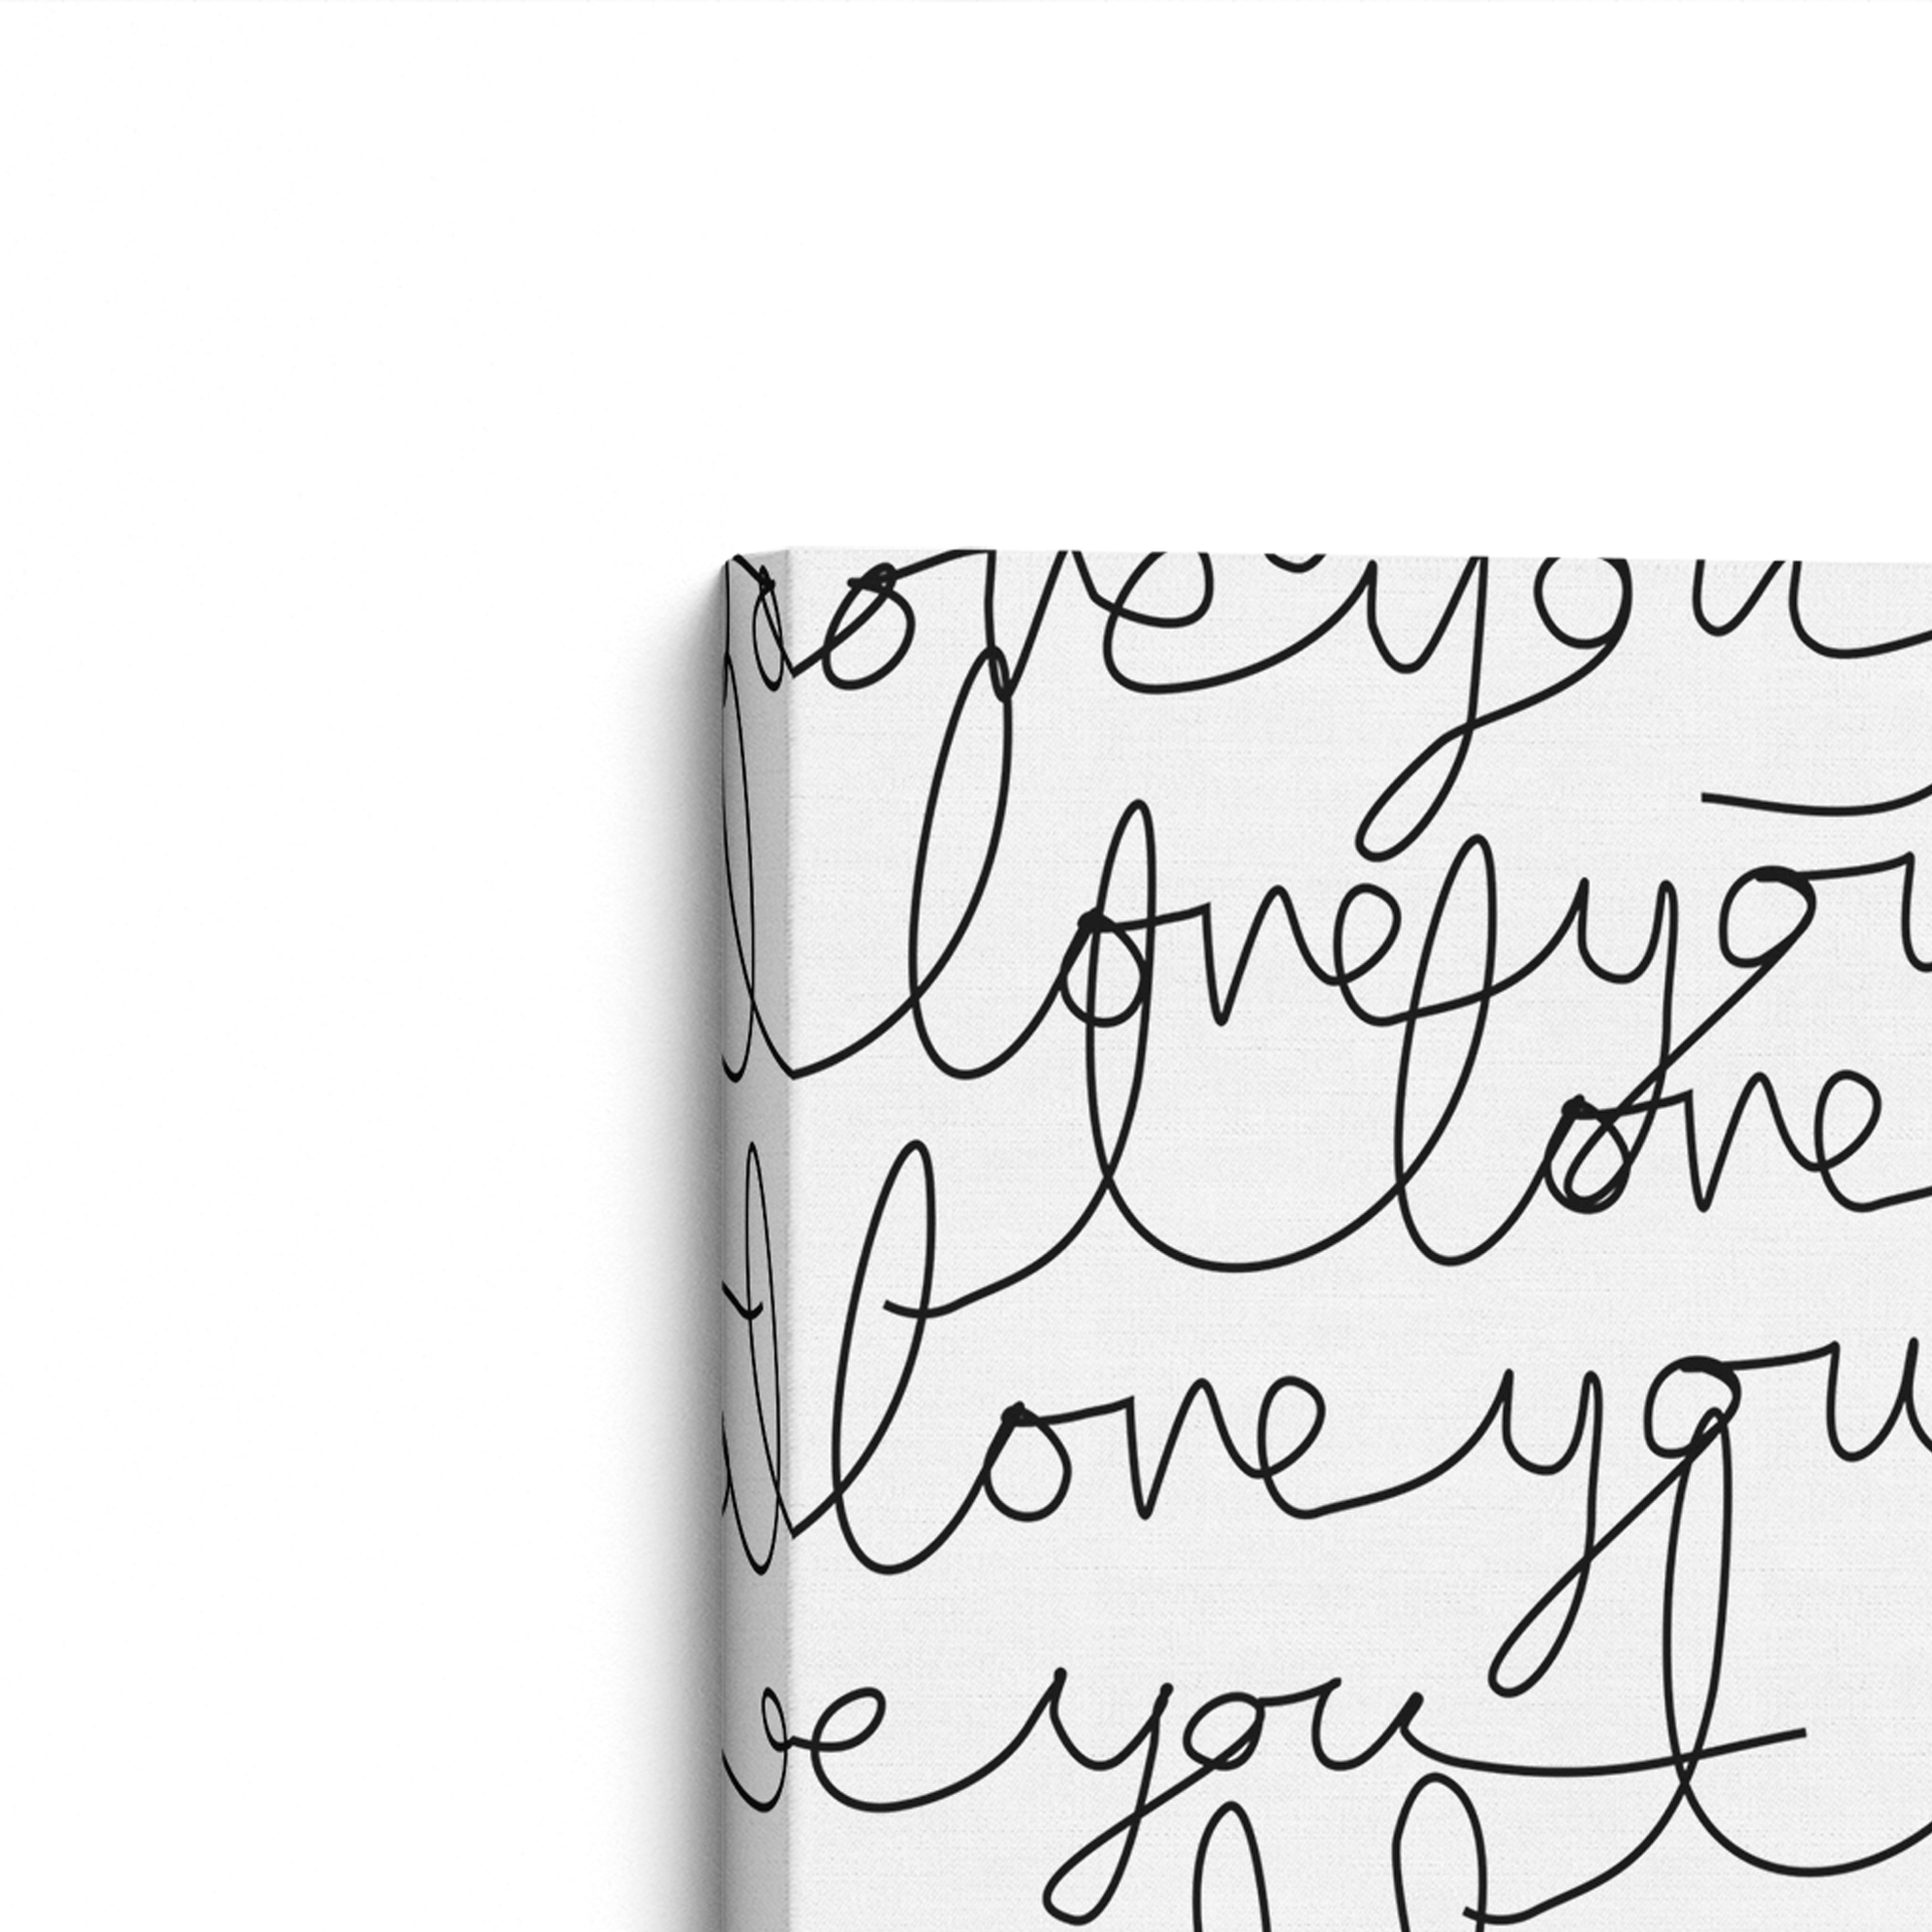 love you
I love you
I love
love you
e you